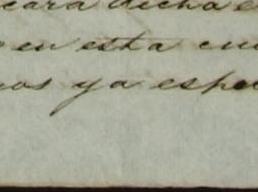 cara dicha e
en esta cu
os ya espe